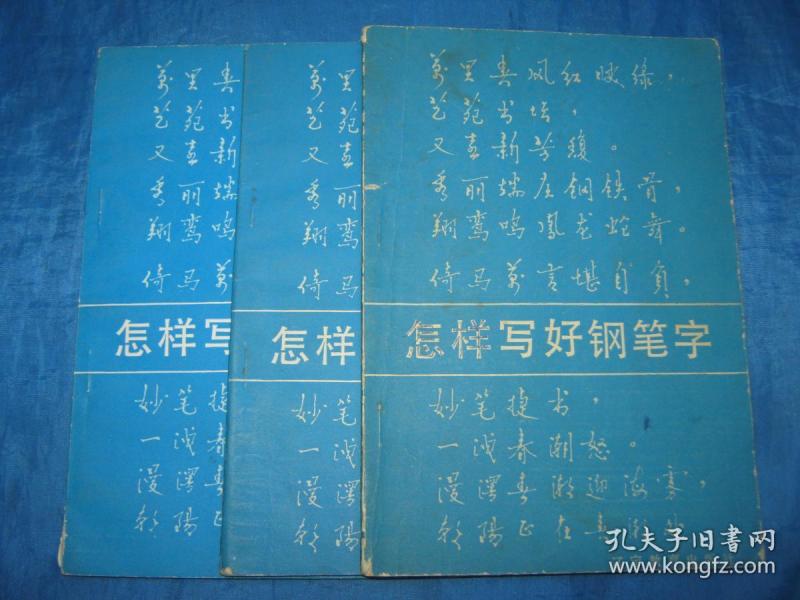 万里春
艺苑书
又喜新
秀丽端
翔鸾鸣
倚马万
怎样写
妙笔捷
一泼春
漫
朝阳正
万里
艺苑
又喜
秀丽
翔鸾
倚马
怎样
妙笔
一泼
漫
朝阳
万里春风红映绿，
艺苑书坛，
又喜新芳馥。
秀丽端庄钢铁骨，
翔鸾鸣凤龙蛇舞。
倚马万言堪自负，
怎样写好钢笔字
妙笔捷书，
一泼春潮怒。
朝阳正在
孔夫子旧书网
www.kongfz.com